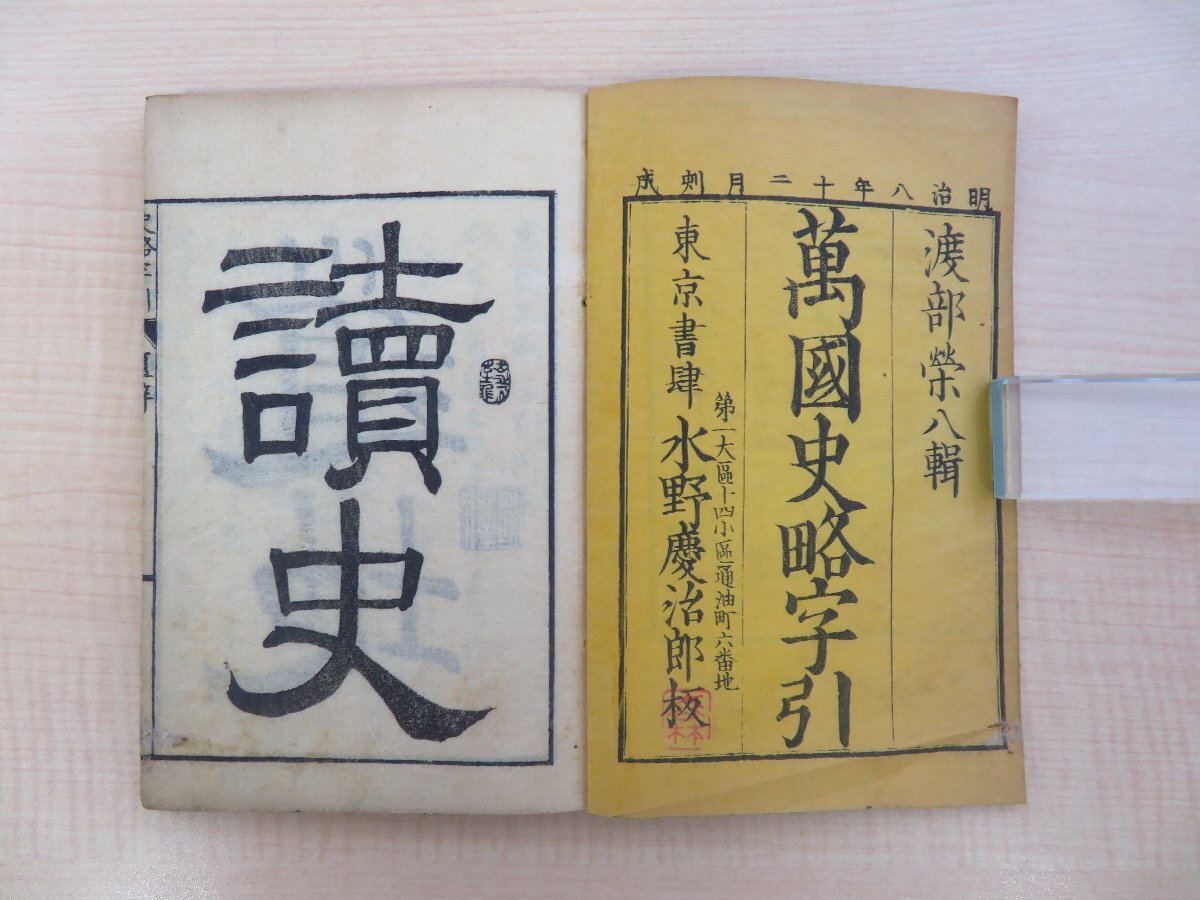 明治八年十二月刿成
渡部榮八輯
萬國史略字引
第一大區十四小區通油町六番地
東京書肆 水野慶治郎板
讀史
史略字引